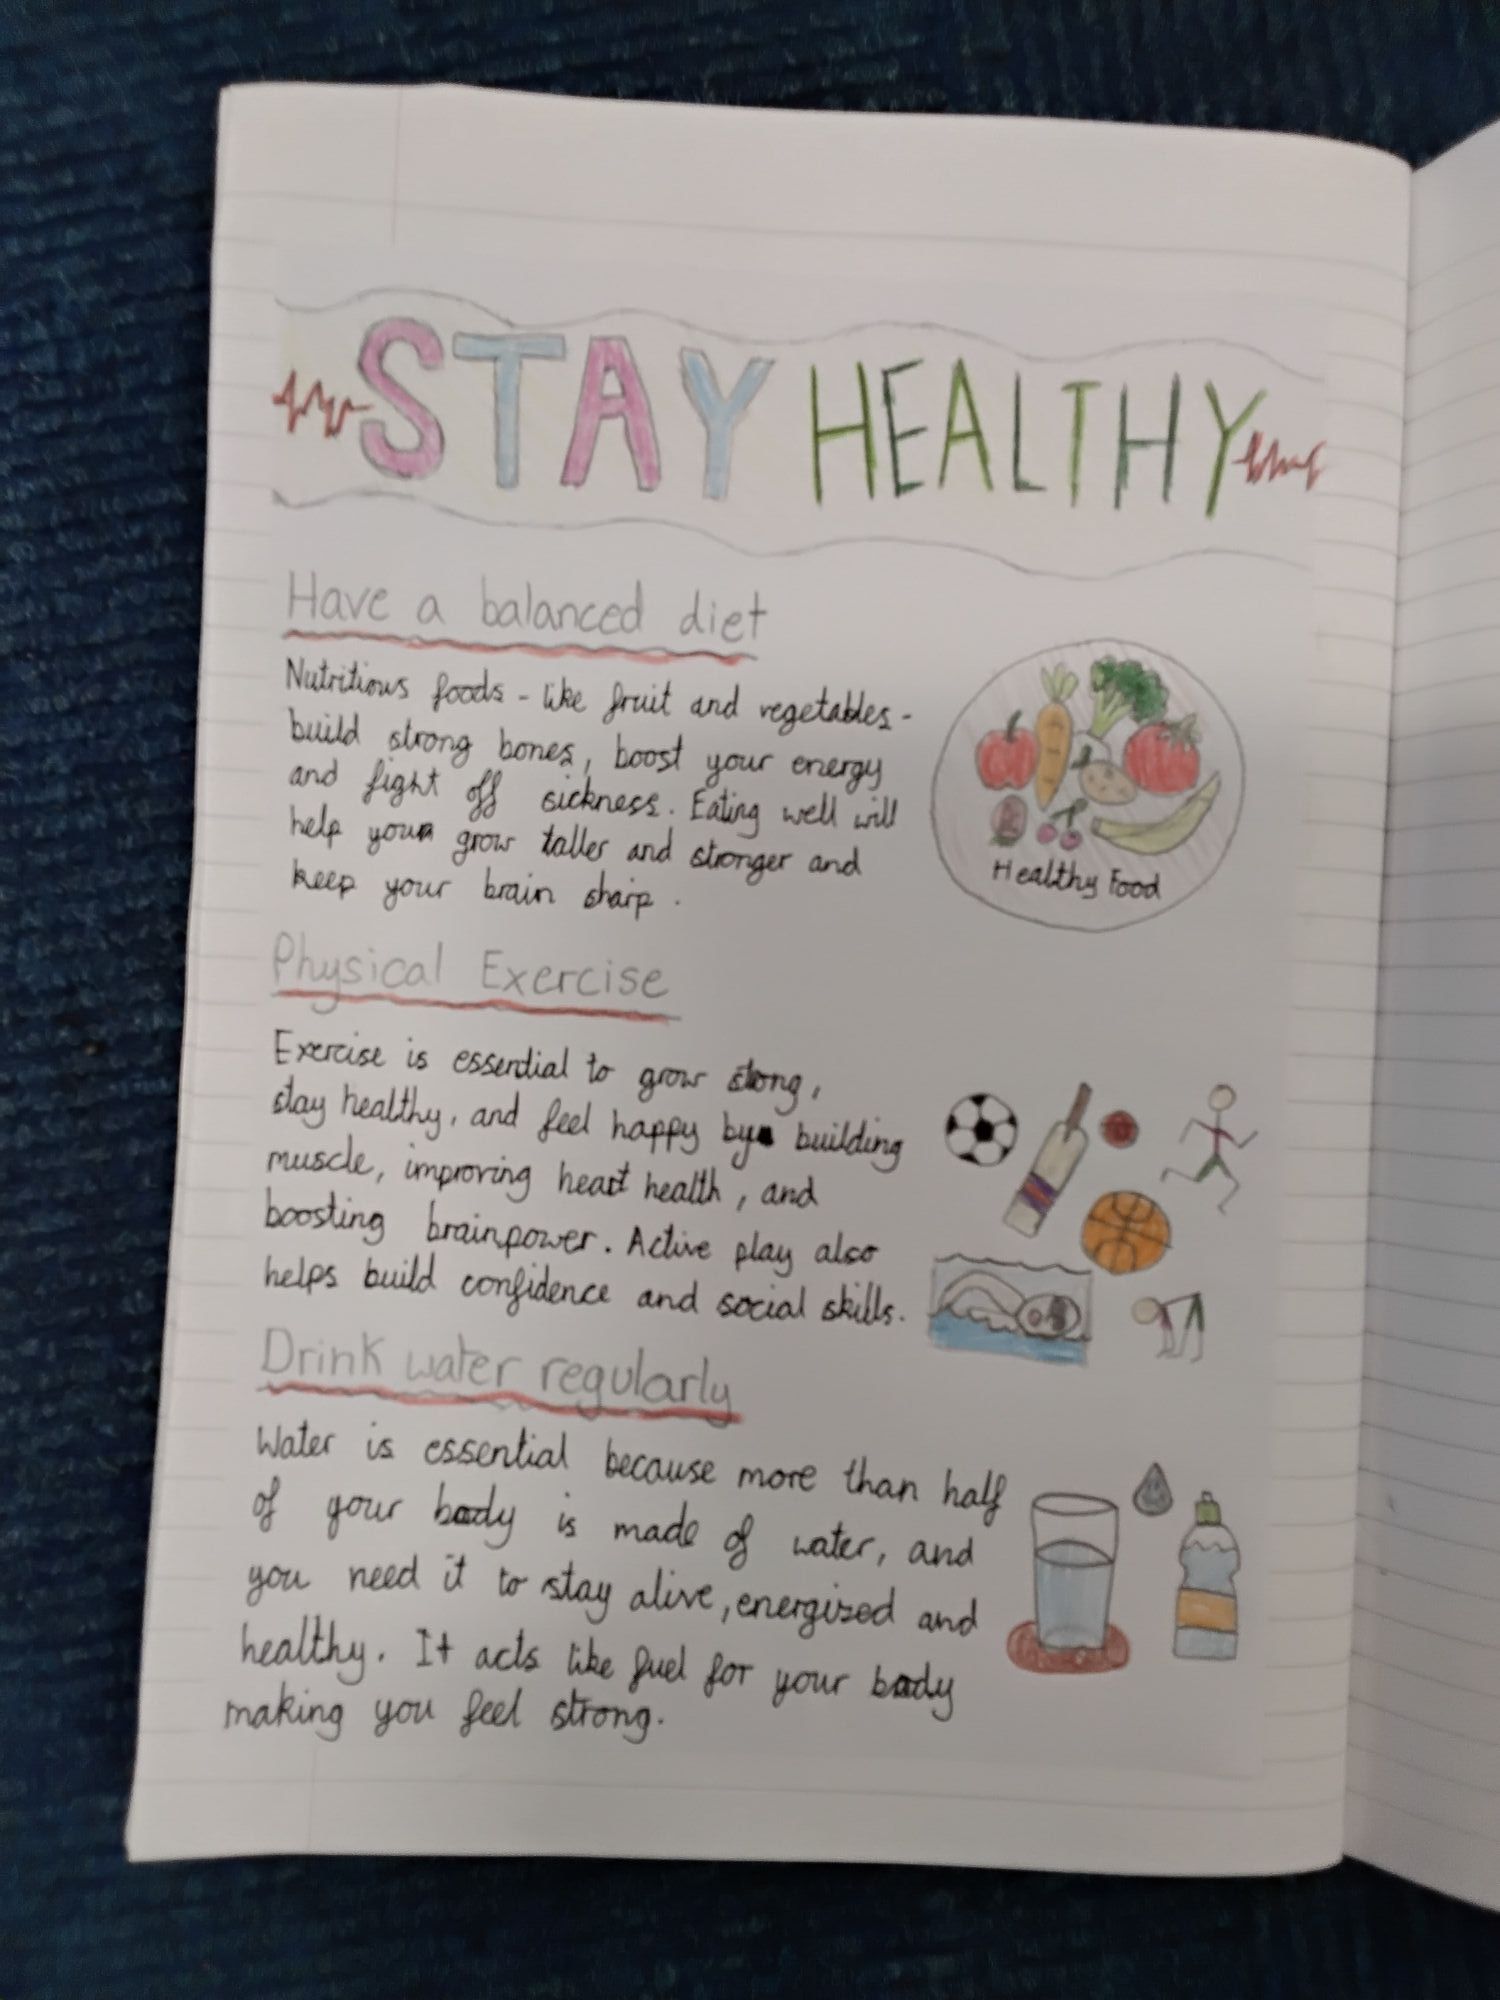 STAY HEALTHY
Have a balanced diet
Nutritious foods - like fruit and vegetables -
build strong bones, boost your energy
and fight off sickness. Eating well will
help you grow taller and stronger and
keep your brain sharp.
Healthy Food
Physical Exercise
Exercise is essential to grow strong,
stay healthy, and feel happy by building
muscle, improving heart health, and
boosting brainpower. Active play also
helps build confidence and social skills.
Drink water regularly
Water is essential because more than half
of your body is made of water, and
you need it to stay alive, energised and
healthy. It acts like fuel for your body
making you feel strong.